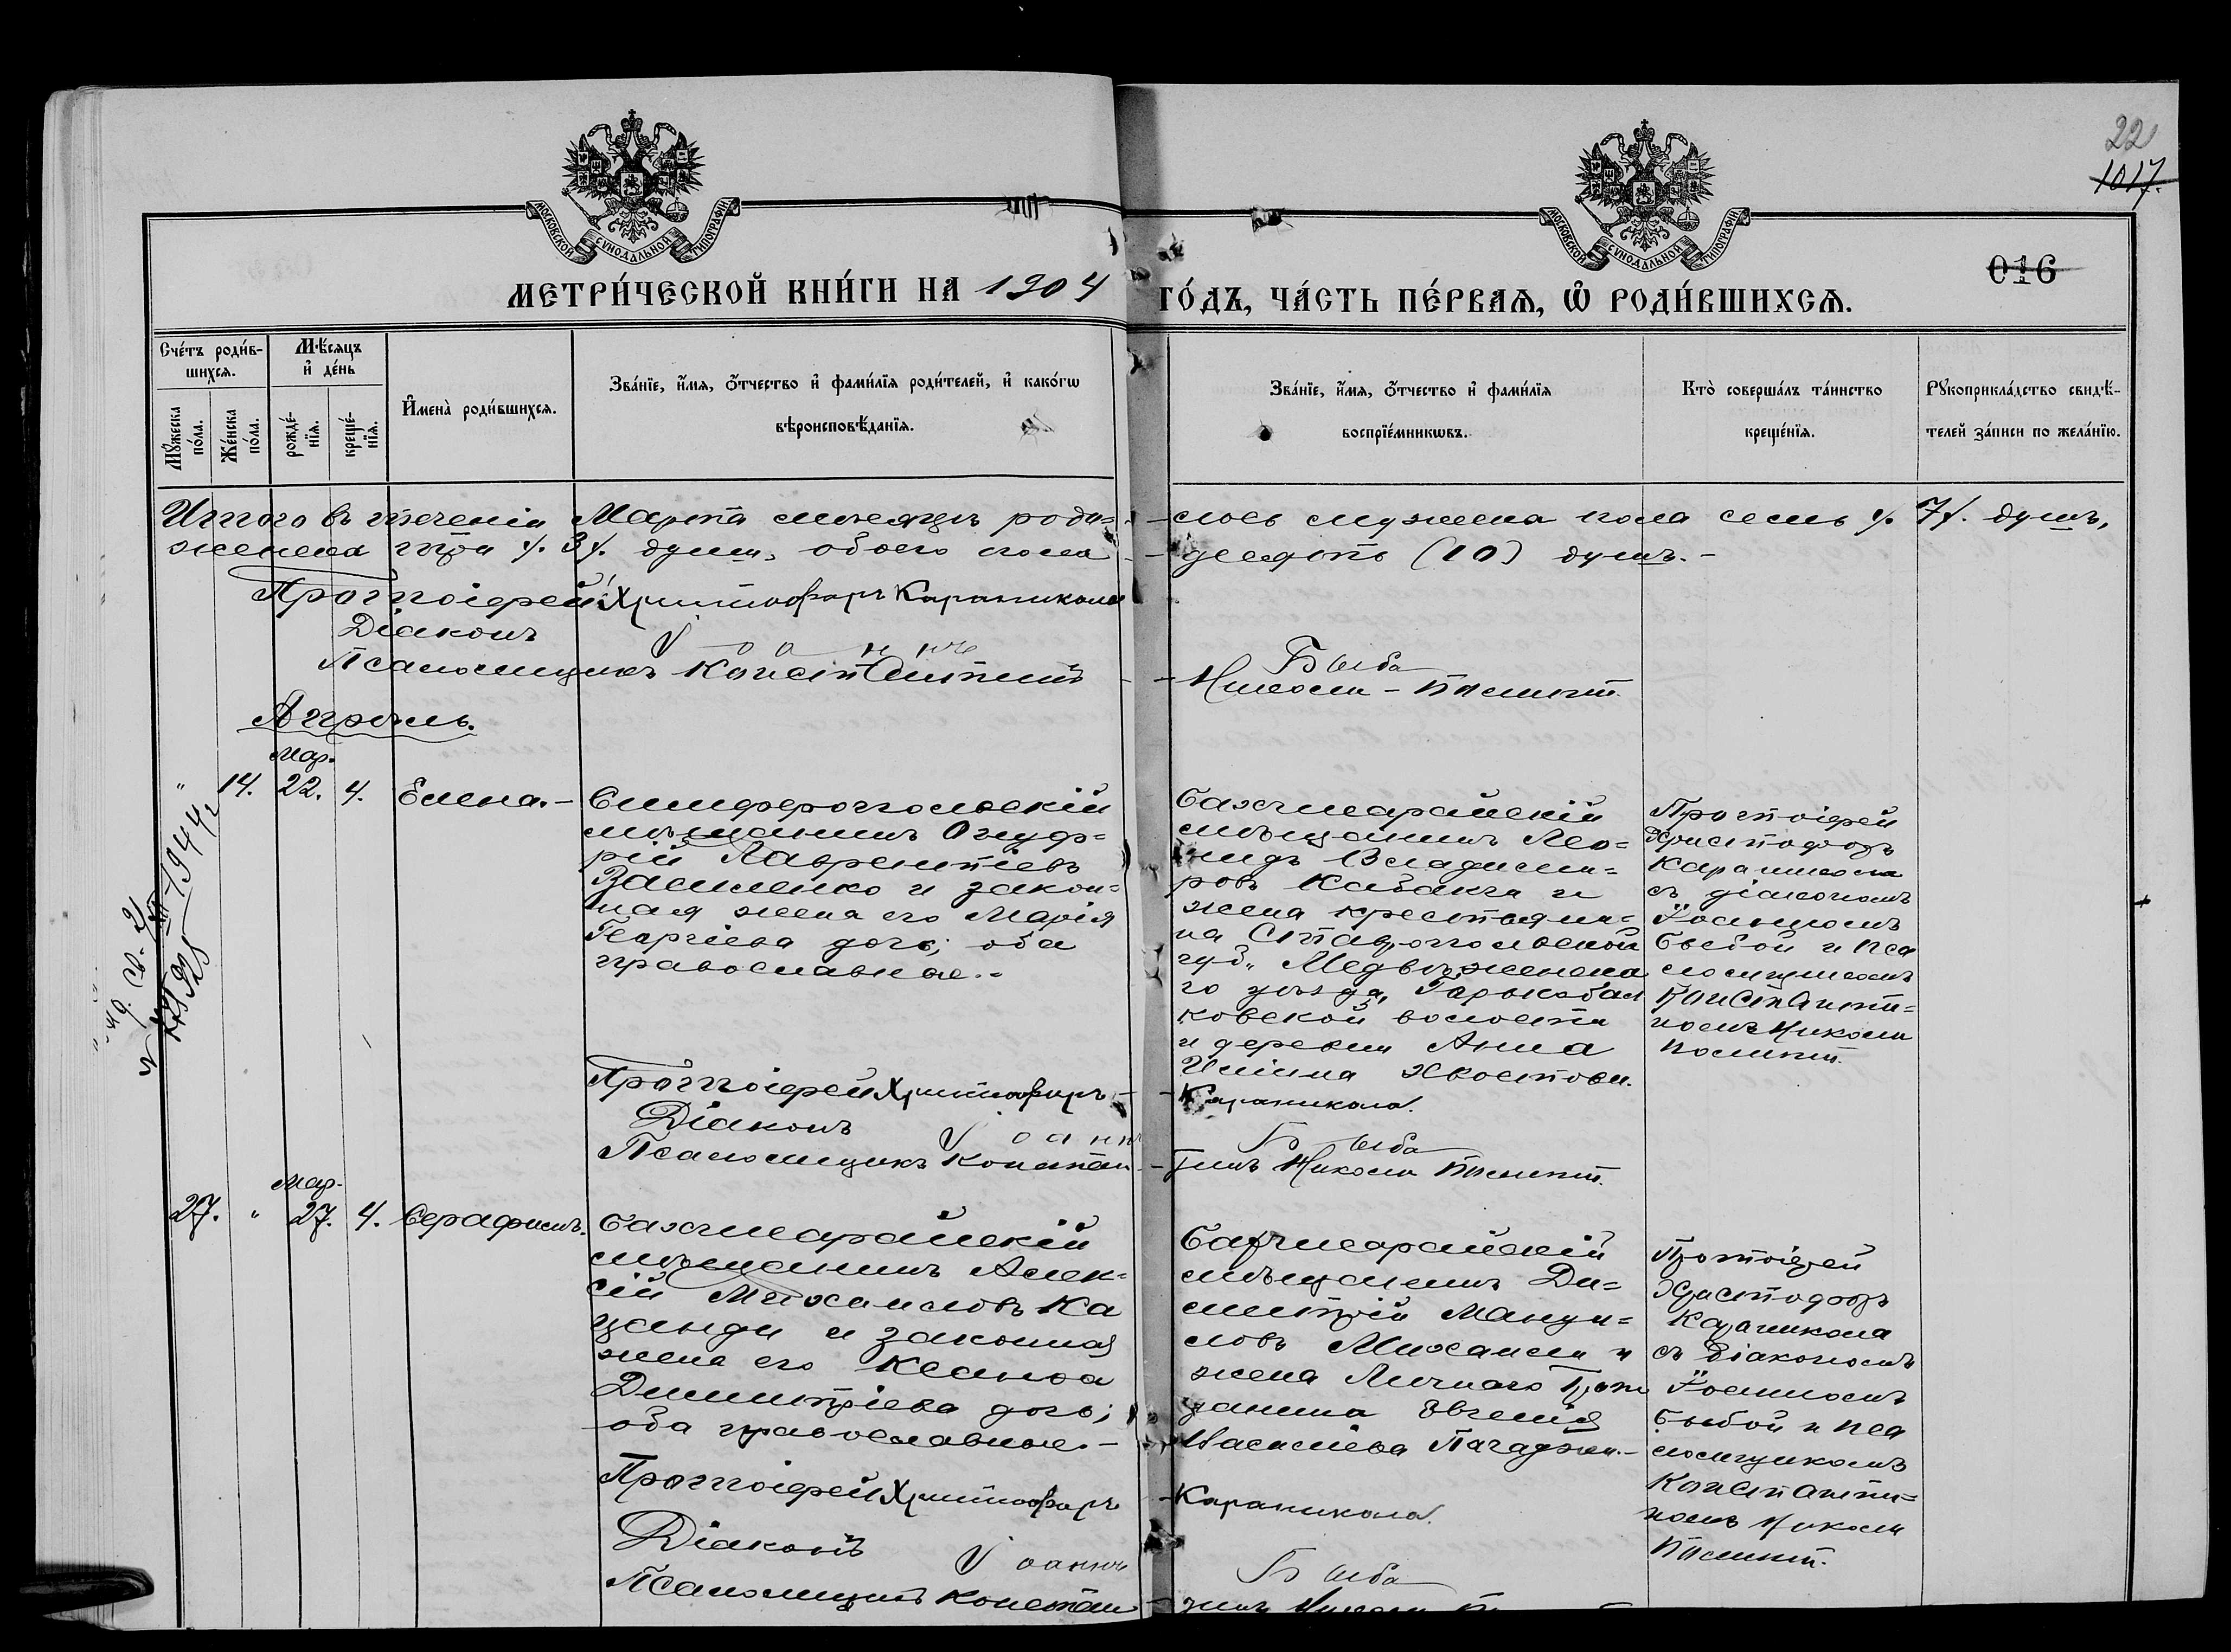 22
1017.
016
МОСКОВСКОЙ СѴНОДАЛЬНОЙ ТИПОГРАФІИ
МОСКОВСКОЙ СѴНОДАЛЬНОЙ ТИПОГРАФІИ
МЕТРИ́ЧЕСКОЙ КНИ́ГИ НА 1904 ГО́ДЪ, ЧА́СТЬ ПЕ́РВАѦ, Ѡ҆ РОДИ́ВШИХСѦ.
Сче́тъ роди́в-
шихсѧ.
Мꙋ́жеска по́ла.
Же́нска по́ла.
Мѣ́сѧцъ
и҆ де́нь
рожде́-
нїѧ.
креще́-
нїѧ.
И҆мена̀ роди́вшихсѧ.
Зва́нїе, и҆́мѧ, ѻ҆́тчество и҆ фами́лїѧ роди́телей, и҆ како́гѡ
вѣроисповѣ́данїѧ.
Зва́нїе, и҆́мѧ, ѻ҆́тчество и҆ фами́лїѧ
воспрїе́мникѡвъ.
Кто̀ соверша́лъ та́инство
креще́нїѧ.
Рꙋкоприкла́дство свидѣ́-
телей за́писи по жела́нїю.
Итого въ теченіи Марта мѣсяцъ роди-лось мужеска пола семь /. 7/. душъ,
женска три /. 3/. души, обоего пола десять (10) душъ.-
Протоіерей Христофоръ Караникола
Діаконъ Іоаннъ Быба
Псаломщикъ Константинъ Николи-
Апрѣль.
Мар.
" 14. 22. 4. Елена.-
Симферопольскій
мѣщанинъ Онуф-
рій Лаврентіевъ
и закон-
ная жена его Марія
Георгіева дочь; оба
православные.-
Бахчисарайскій
мѣщанинъ Лео-
нидъ Владими-
ровъ и
жена крестьяни-
на Ставропольской
губ. Медвѣженска
го уѣзда,
ковской волости
и деревни Анна
Хвостова.
Протоіерей
Христофоръ
Караникола
съ діакономъ
Іоанномъ
Быбой и пса
ломщикомъ
Константи-
номъ Николи
Протоіерей Христофоръ Караникола.
Діаконъ Іоаннъ Быба
Псаломщикъ Константинъ Николи
Мар.
27. " 27. 4. Серафимъ.
Бахчисарайскій
мѣщанинъ Алек-
сій Михаиловъ Ка
и законная
жена его
Димитріева дочь;
оба православные.-
Бахчисарайскій
мѣщанинъ Ди-
митрій
ловъ Михаили и
жена Личнаго Граж
данина Евгенія
Васильева
Протоіерей
Христофоръ
Караникола
съ Діакономъ
Іоанномъ
Быбой и пса
ломщикомъ
Константи-
номъ Николи
Протоіерей Христофоръ Караникола.
Діаконъ Іоаннъ Быба
Псаломщикъ Константинъ